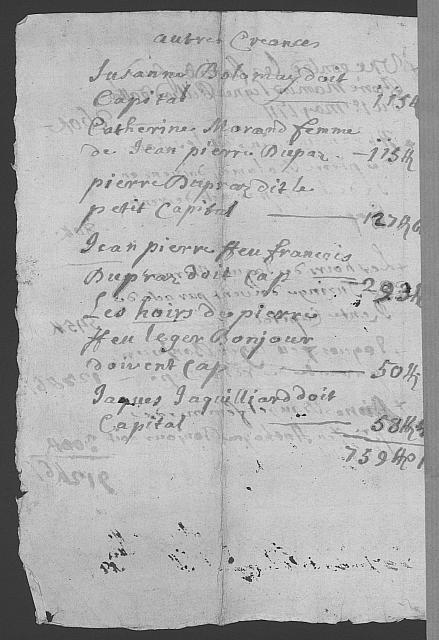 autres Creances
Susanne Bolomay doit
Capital 115 ₶
Catherine Morand femme
de Jean pierre Dupraz 115 ₶
pierre Dupraz dit le
petit Capital 127 ₶ 6
Jean pierre ffeu francois
Dupraz doit Cap 293 ₶
Les hoirs de pierre
ffeu leger Bonjour
doivent Cap 50 ₶
Jaques Jaquilliard doit
Capital 58 ₶
759 ₶